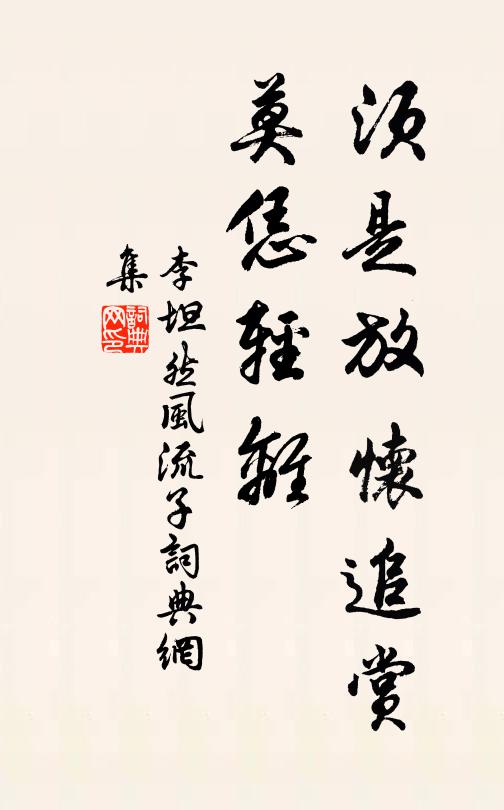 須是放懷追賞
莫恁輕離
李坦然風流子詞典網
集
詞典
网印